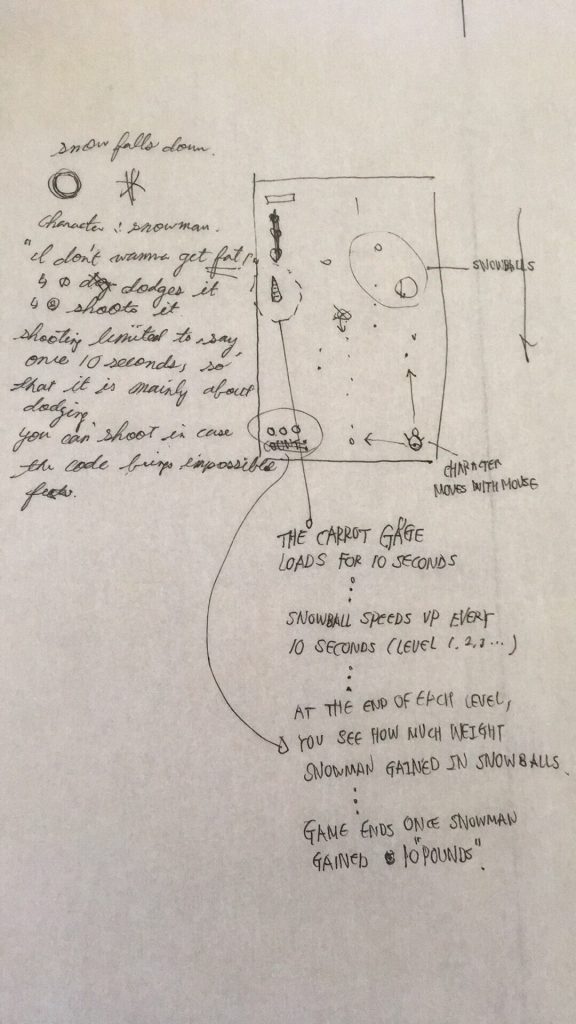 snow falls down.
character : snowman.
"I don't wanna get fat!"
↳ ① dodges it
↳ ② shoots it
shooting limited to, say,
once 10 seconds, so
that it is mainly about
dodging
you can shoot in case
the code brings impossible
SNOWBALLS
COUNT
CHARACTER
MOVES WITH MOUSE
THE CARROT GAGE
LOADS FOR 10 SECONDS
SNOWBALL SPEEDS UP EVERY
10 SECONDS (LEVEL 1, 2, 3 ...)
AT THE END OF EACH LEVEL,
YOU SEE HOW MUCH WEIGHT
SNOWMAN GAINED IN SNOWBALLS.
GAME ENDS ONCE SNOWMAN
GAINED 10 "POUNDS".